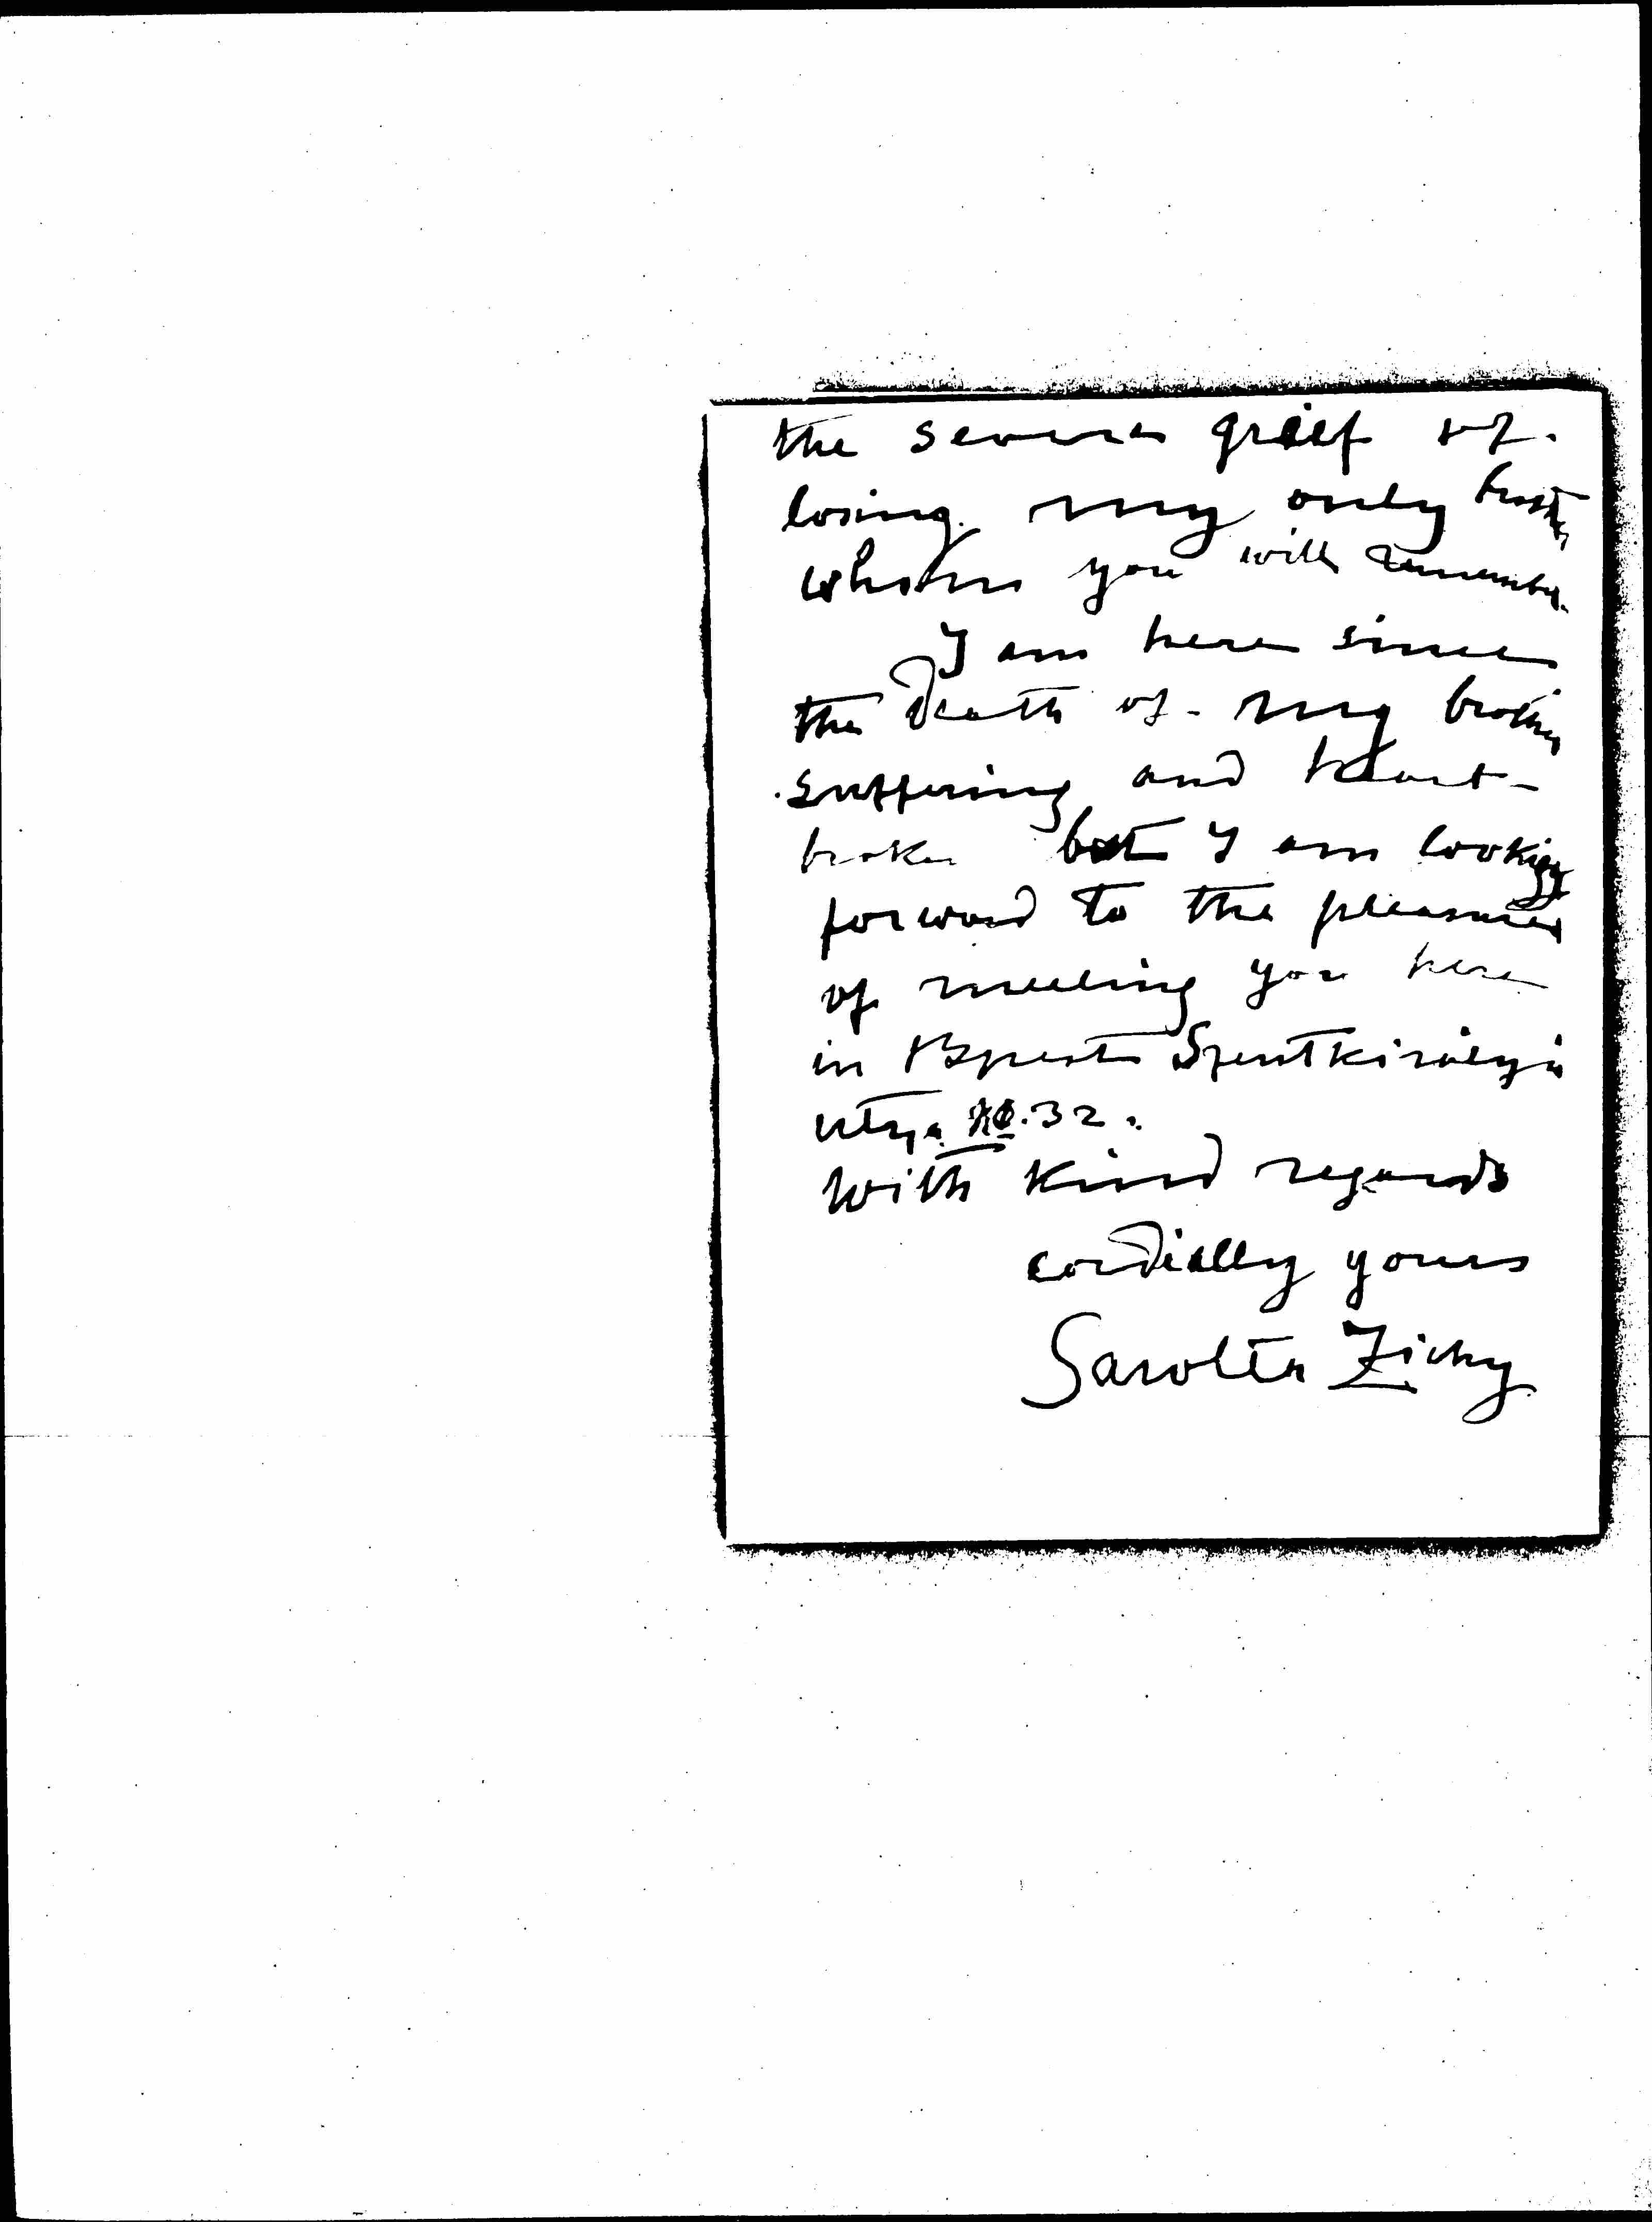 the severe grief of
losing my only brother
whom you will remember.
I am here since
the death of my brother
suffering and heart-
broken but I am looking
forward to the pleasure
of meeting you here
in Bpest Szentkirályi
utca 32.
with kind regards
cordially yours
Sarolta Zichy